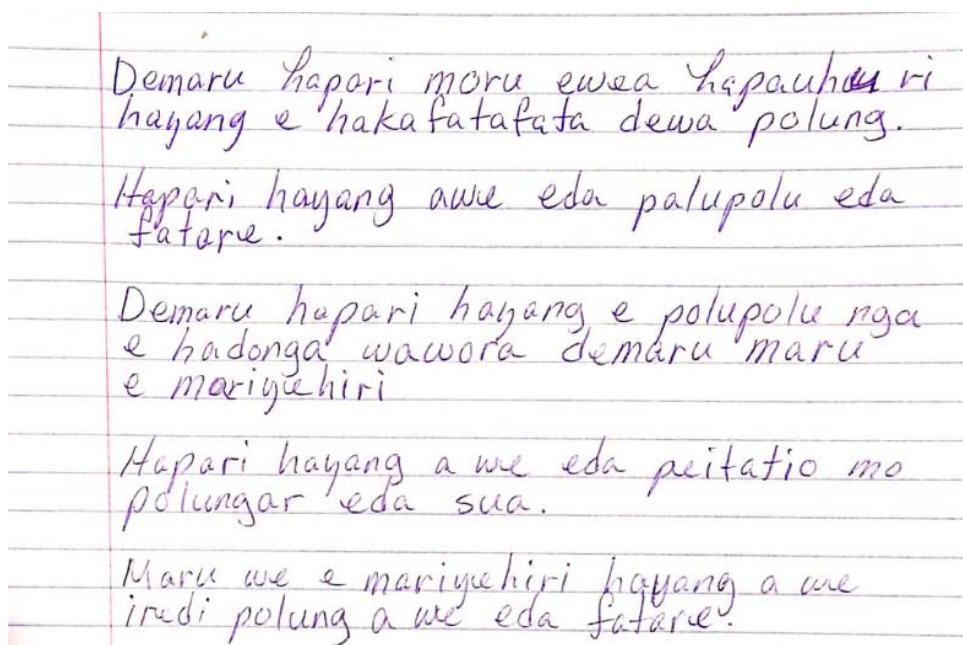 Demaru hapari moru ewea hapauhau ri
hayang e hakafatafata dewa polung.
Hapari hayang awe eda palupolu eda
fatare.
Demaru hapari hayang e polupolu nga
e hadonga wawora demaru maru
e mariyehiri
Hapari hayang a we eda peitatio mo
polungar eda sua.
Maru we e mariyehiri hayang a we
iredi polung a we eda fatare.